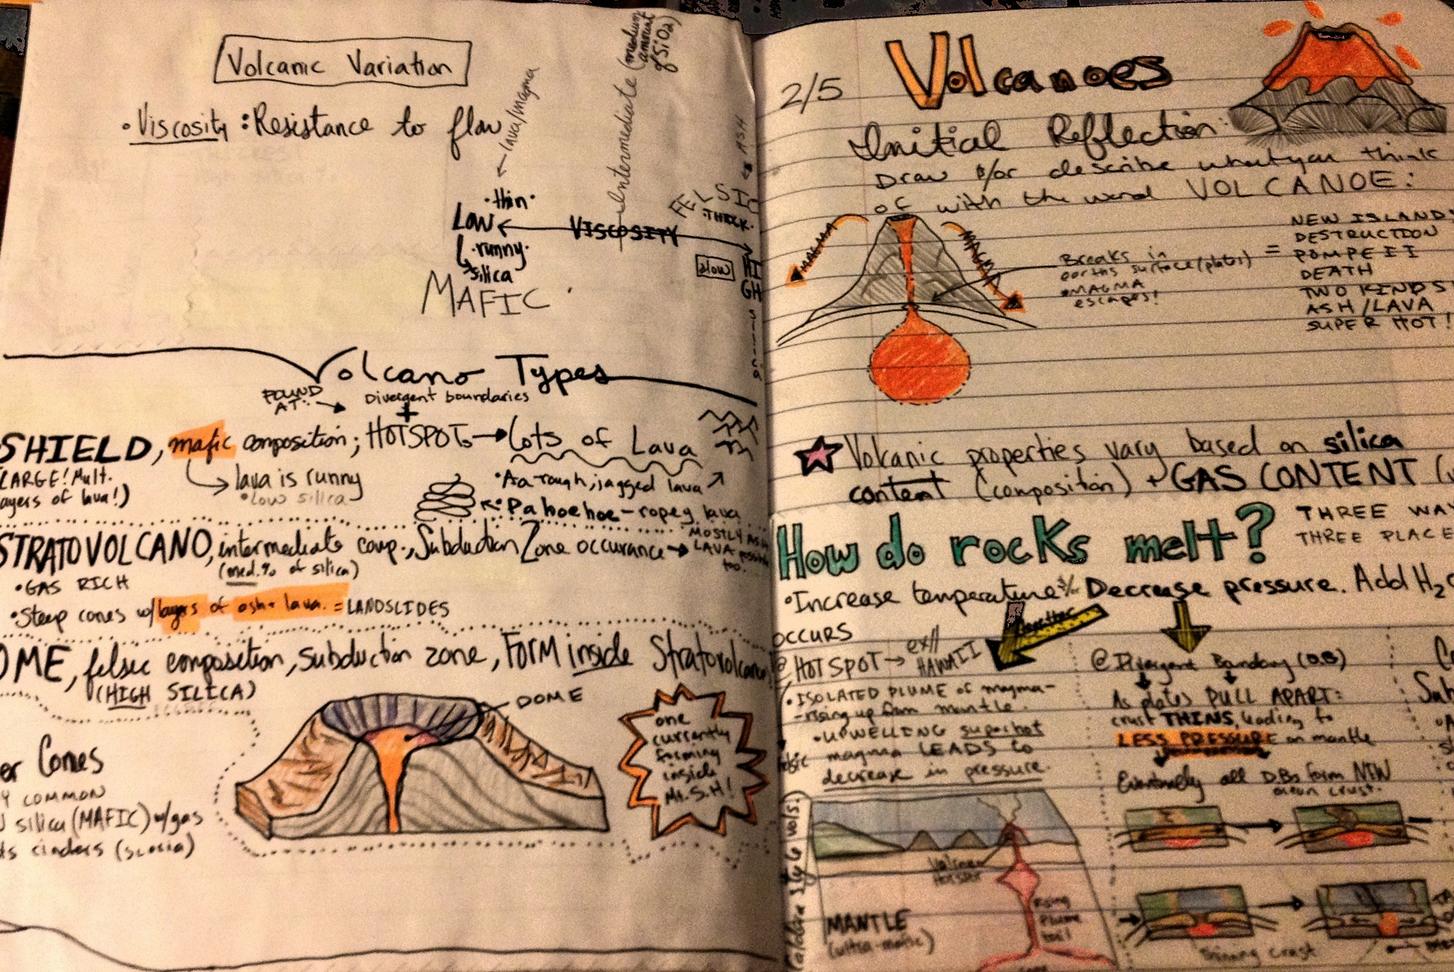 Volcanic Variation
• Viscosity : Resistance to flow
← lava/magma
Intermediate (medium amount of SiO2)
ASH
FELSIC
• thin •
THICK •
LOW ← VISCOSITY → HIGH
runny •
silica
slow
silica
MAFIC •
Volcano Types
FOUND AT:
Divergent boundaries
+
SHIELD, mafic composition; HOTSPOTS → Lots of Lava
LARGE! Mult.
layers of lava!)
lava is runny
• Low silica
• Aa-rough, jagged lava
Pahoehoe - ropey lava
STRATOVOLCANO, intermediate comp., Subduction Zone occurance →
MOSTLY ASH
LAVA
too.
(med. % of silica)
• GAS RICH
• Steep cones w/ layers of ash + lava. = LANDSLIDES
OME, felsic composition, subduction zone, FORM inside Stratovolcano
(HIGH SILICA)
DOME
one
currently
forming
inside
Mt. S.H!
er Cones
Y COMMON
silica (MAFIC) w/gas
ts cinders (scoria)
2/5
Volcanoes
Initial Reflection:
Draw &/or describe what you think
of with the word VOLCANOE:
MAGMA
MAGMA
Breaks in
earths surface (plates)
• MAGMA
escapes!
=
NEW ISLAND
DESTRUCTION
POMPEII
DEATH
TWO KINDS
ASH/LAVA
SUPER HOT!
Volcanic properties vary based on silica
content (composition) + GAS CONTENT (
How do rocks melt?
THREE WAY
THREE PLACE
• Increase temperature &/ Decrease pressure. Add H2
OCCURS
@ HOTSPOT → ex// HAWAII
• ISOLATED PLUME of magma -
- rising up from mantle.
• UPWELLING superhot
magma LEADS to
decrease in pressure.
@ Divergent Boundary (D.B)
As plates PULL APART:
crust THINS, leading to
LESS PRESSURE on mantle
Eventually all DBs form NEW
ocean crust.
Caldera style volcs.
Volcano
Hotspot
MANTLE
(ultra-mafic)
Rising
Plume
tail
Thinning crust